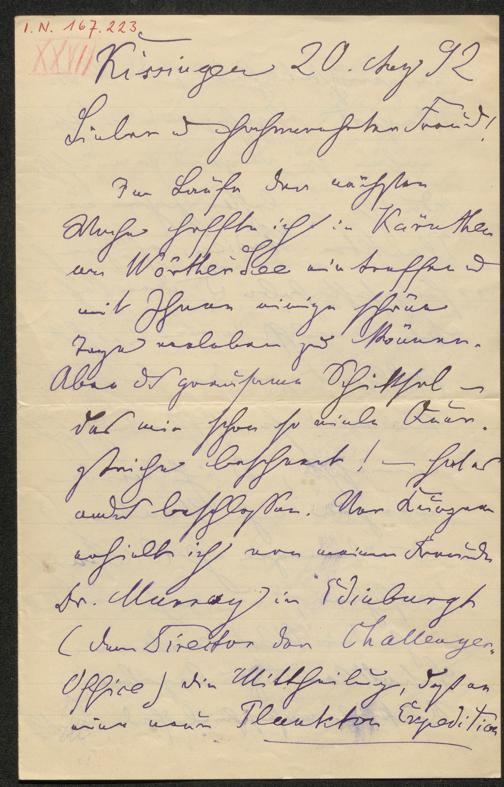 I. N. 167.223
XXVII
Kissingen 20. Aug 92
Lieber u hochverehrter Freund!
Im Laufe der nächsten
Woche hoffte ich in Kärnthen
am Wörther See eintreffen u
mit Ihnen einige schöne
Tage verleben zu können.
Aber das grausame Schicksal –
das mir schon so viele Quer-
striche beschert! – hat es
anders beschlossen. Vor Kurzem
erhielt ich von meinem Freunde
Dr. Murray in Edinburgh
(dem Director der Challenger-
Office) die Mittheilung, daß er
eine neue Plankton Expedition